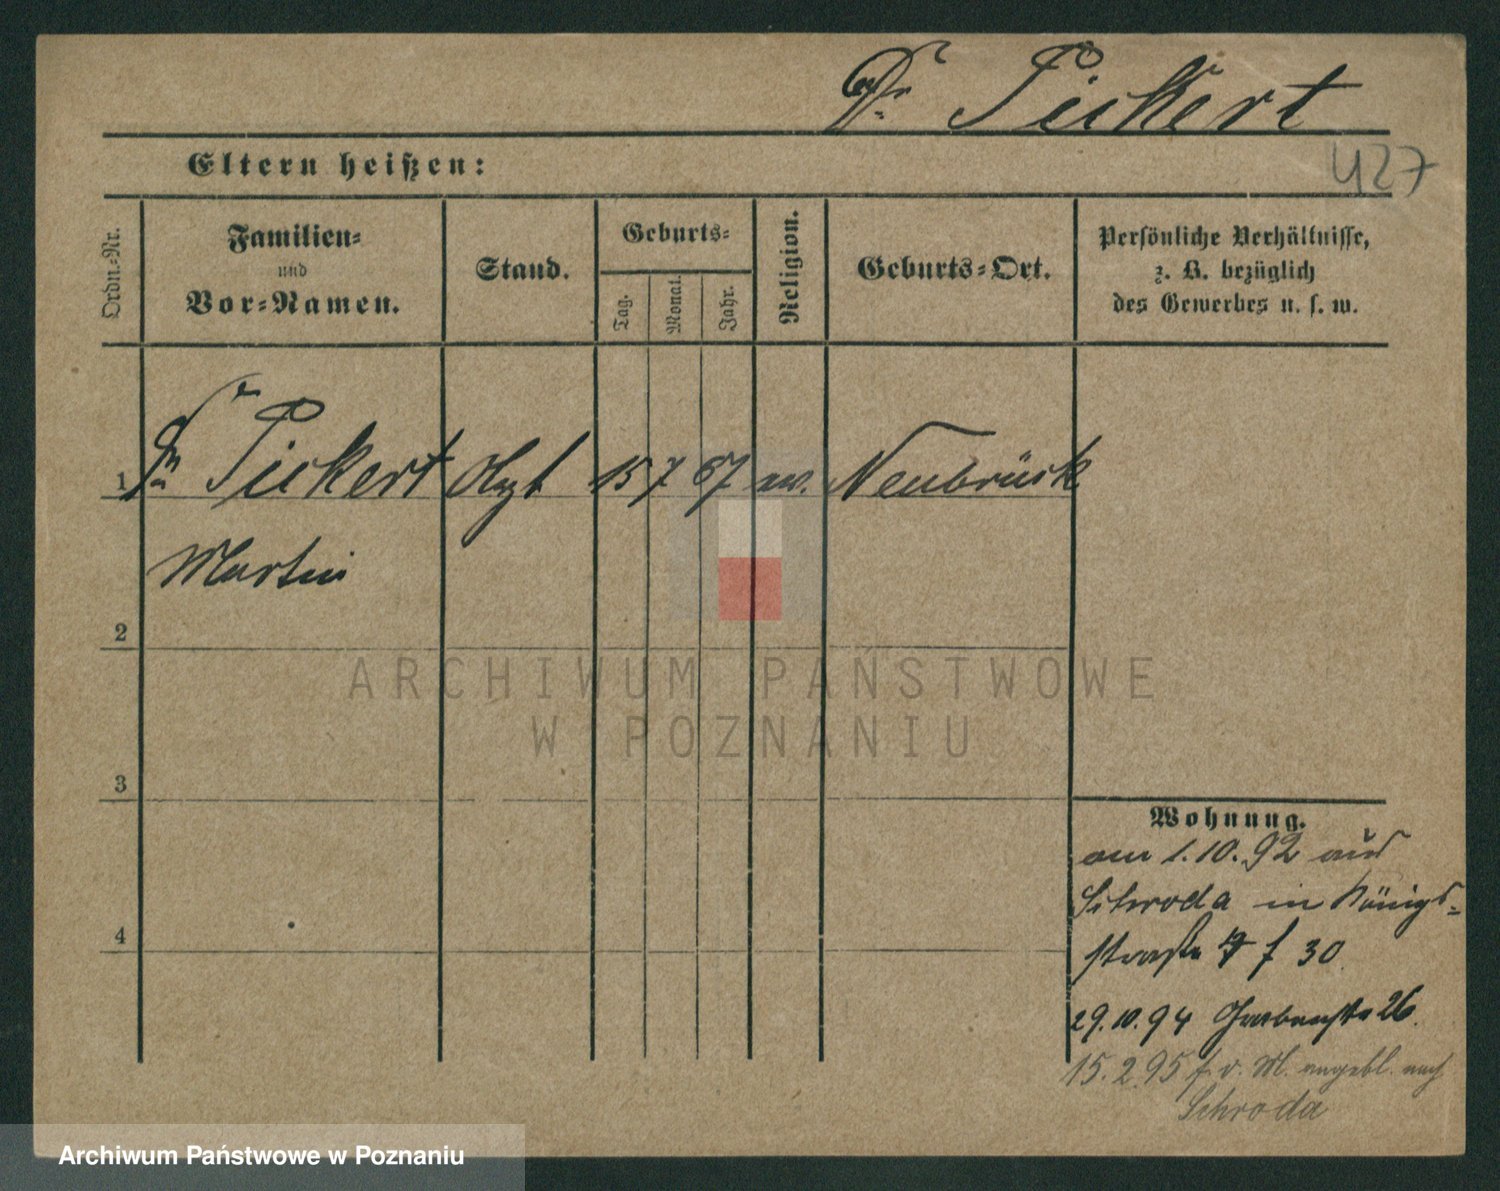 Dr Pickert
427
Eltern heißen:
Ordn.-Nr.
Familien-
und
Vor-Namen.
Stand.
Geburts-
Tag.
Monat.
Jahr.
Religion.
Geburts-Ort.
Persönliche Verhältnisse,
z. B. bezüglich
des Gewerbes u. s. w.
1 Dr Pickert 15 7 67 ev. Neubrück
Martin
2
3
4
Wohnung.
am 1.10.92 aus
Schroda in Königs-
straße f 30
29.10.94 Grabenstr 26.
15.2.95 f v. M. angebl. nach
Schroda
ARCHIWUM PAŃSTWOWE
W POZNANIU
Archiwum Państwowe w Poznaniu